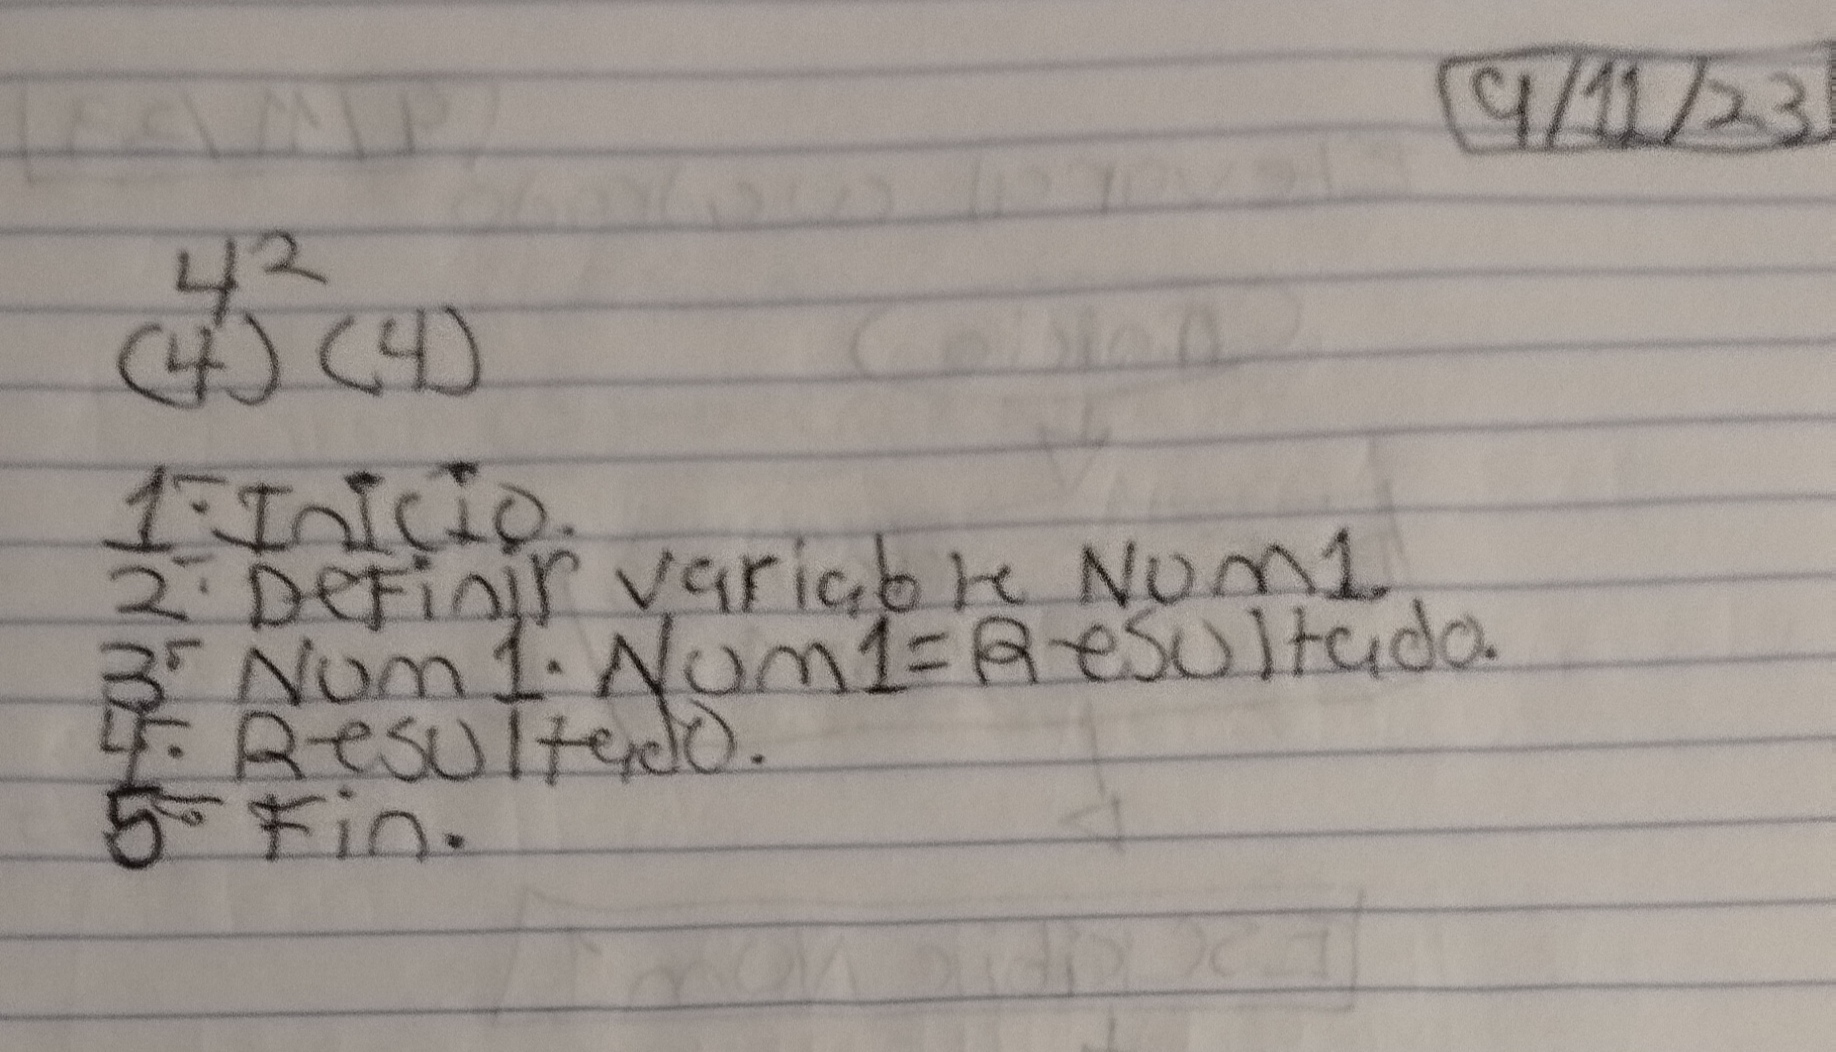 9/11/23
4²
(4) (4)
1-. Inicio.
2-. Definir variable Num1.
3-. Num1. Num1=Resultado.
4-. Resultado.
5-. Fin.